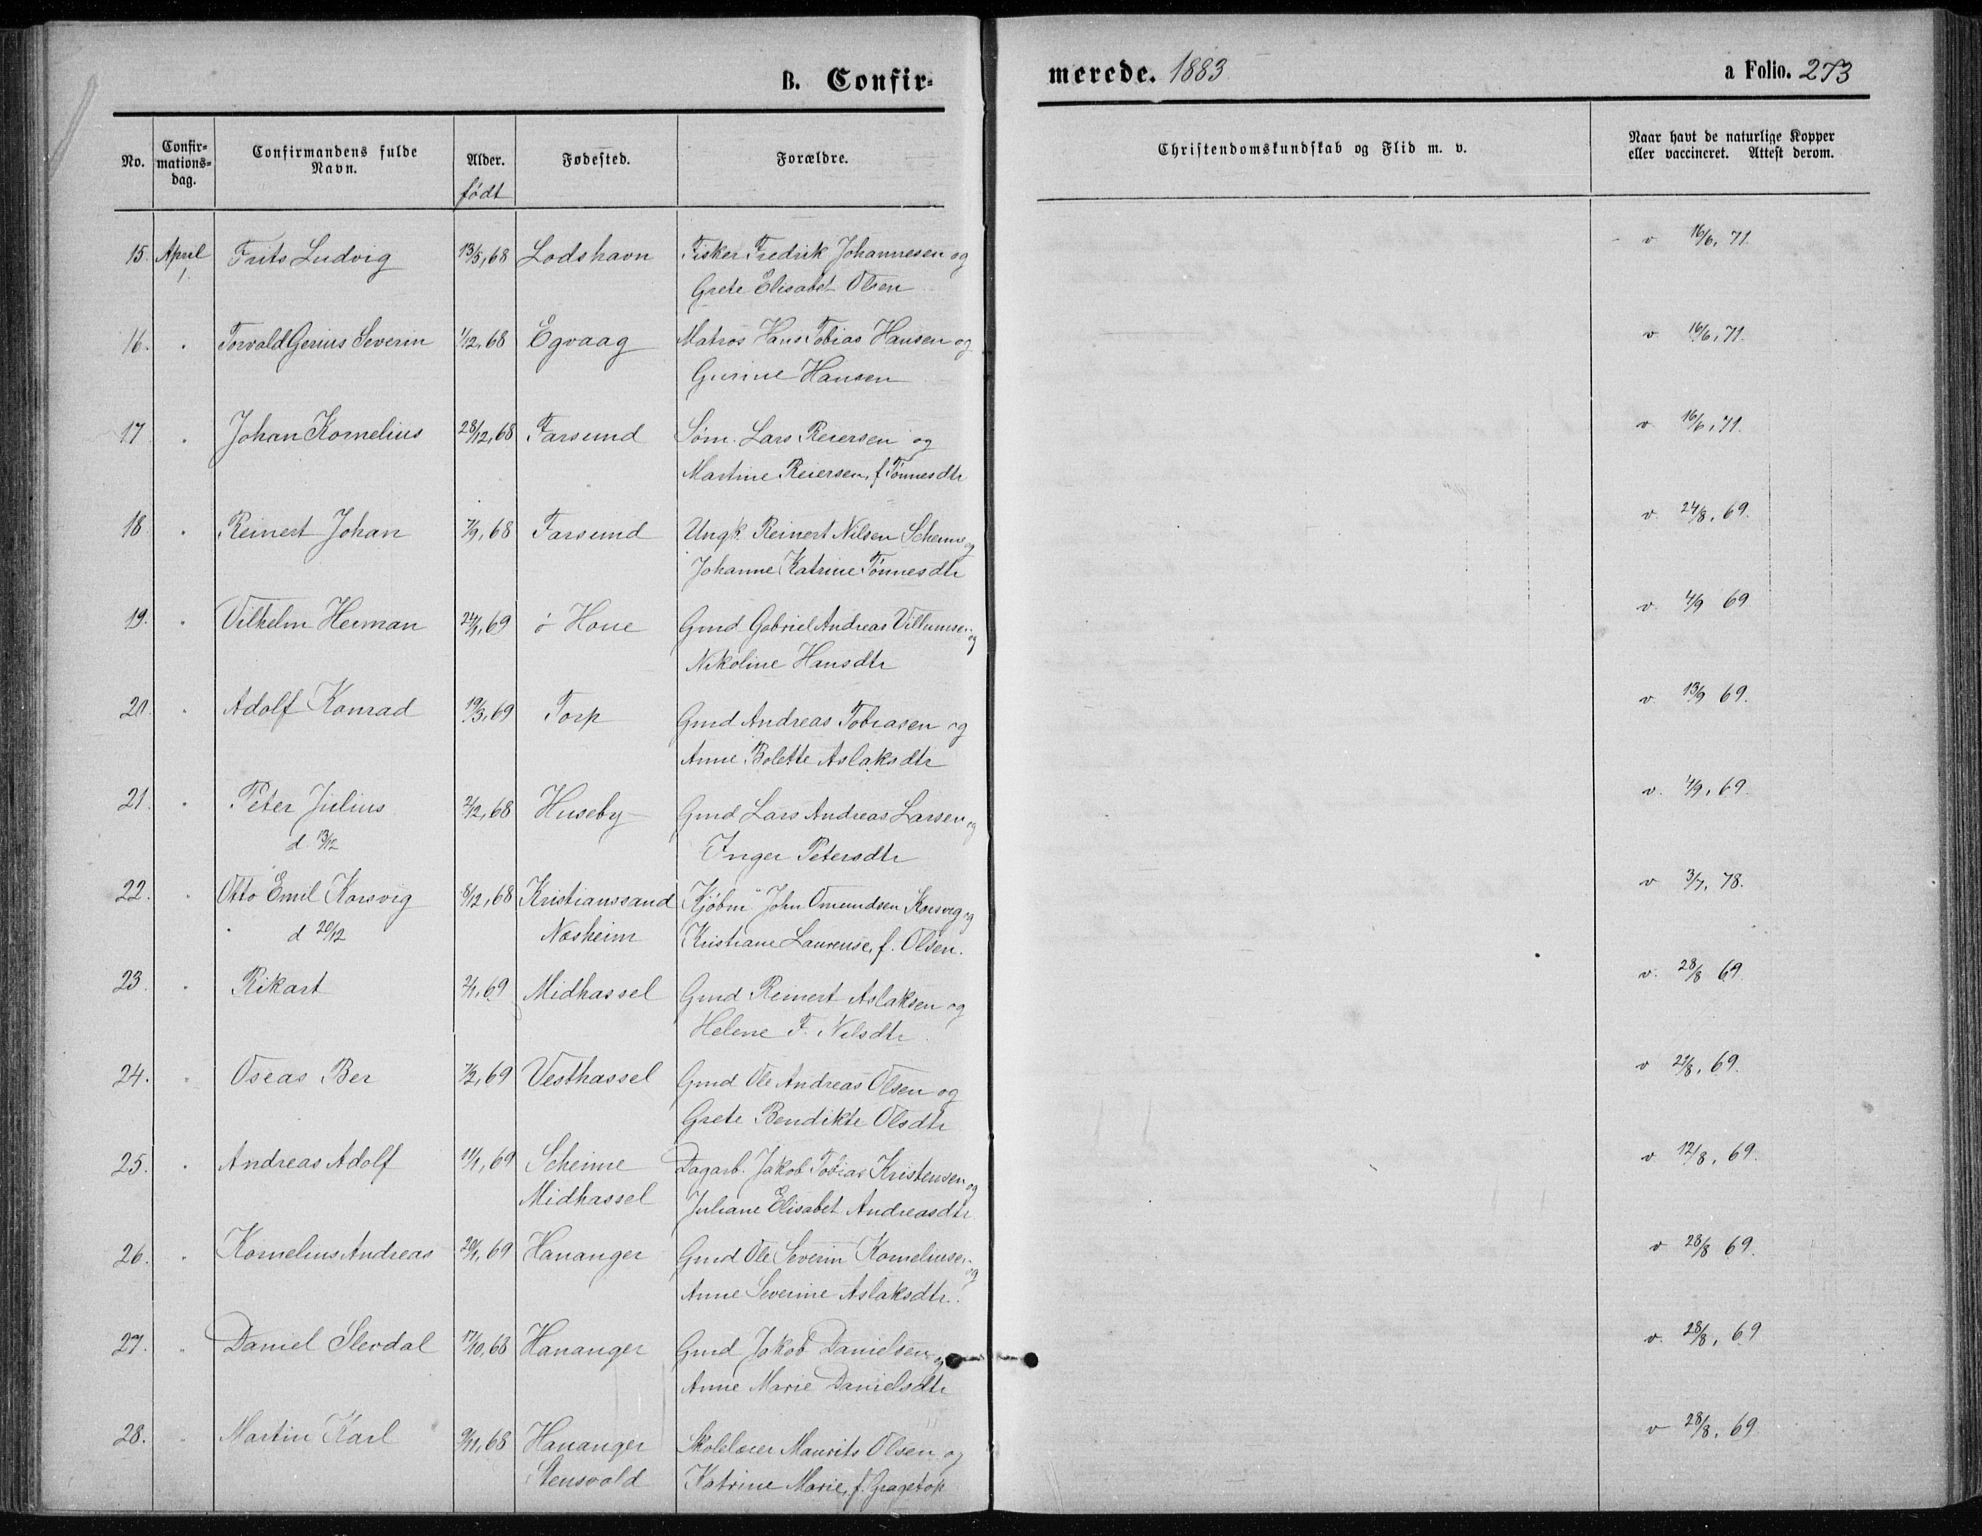 B. Confir-
merede. 1883
a Folio. 273
No.
Confir-
mations-
dag.
Confirmandens fulde
Navn.
Alder.
født
Fødested.
Forældre.
Christendomskundskab og Flid m. v.
Naar havt de naturlige Kopper
eller vaccineret. Attest derom.
15. April 1. Frits Ludvig 13/5, 68 Lodshavn Fisker Fredrik Johannesen og v 16/6, 71.
Grete Elisabet Olsen
16. " Torvald Gerius Severin 1/2, 68 Egvaag Matros Hans Tobias Hansen og v 16/6, 71.
Gurine Hansen
17 " Johan Kornelius 28/12, 68 Farsund Søm. Lars Reiersen og v 16/6, 71.
Martine Reiersen, f Tønnesdtr
18 " Reinert Johan 7/9, 68 Farsund Ungk. Reinert Nilsen Scheime og v. 24/8, 69.
Johanne Katrine Tønnesdtr
19. " Vilhelm Herman 24/1, 69 ø Houe Gmd Gabriel Andreas Villumsen og v. 4/9 69
Nikoline Hansdtr
20 " Adolf Konrad 19/3, 69 Torp Gmd Andreas Tobiasen og v. 13/9 69.
Anne Bolette Aslaksdtr
21. " Peter Julius 2/12, 68 Huseby Gmd Lars Andreas Larsen og v. 4/9, 69.
d. 13/12 Inger Petersdtr
22. " Otto Emil Korsvig 8/12, 68 Kristianssand Kjøbm John Omundsen Korsvig og v 3/7, 78.
d 20/12 Næsheim Kristiane Laurense, f. Olsen.
23. " Rikart 2/1, 69 Midhassel Gmd Reinert Aslaksen og v. 28/8 69.
Helene F. Nilsdtr.
24. " Oseas Ber 7/2, 69 Vesthassel Gmd Ole Andreas Olsen og v 27/8, 69.
Grete Bendikte Olsdtr
25. " Andreas Adolf 11/1, 69 Scheime Dagarb. Jakob Tobias Kristensen og v 12/8, 69.
Midhassel Juliane Elisabet Andreasdtr.
26. " Kornelius Andreas 20/1, 69 Hananger Gmd Ole Severin Korneliusen og v 28/8 69.
Anne Severine Aslaksdtr.
27. " Daniel Slevdal 17/10, 68 Hananger Gmd Jakob Danielsen og v. 28/8, 69
Anne Marie Danielsdtr
28. " Martin Karl 9/11, 68 Hananger Skolelærer Maurits Olsen og v 28/8, 69.
Stensvold Katrine Marie, f. Gragetop